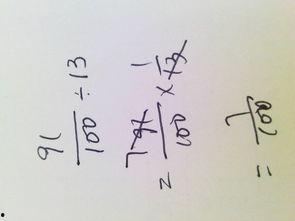 91/100 ÷ 13
= 7 91/100 × 1/13
= 7/100